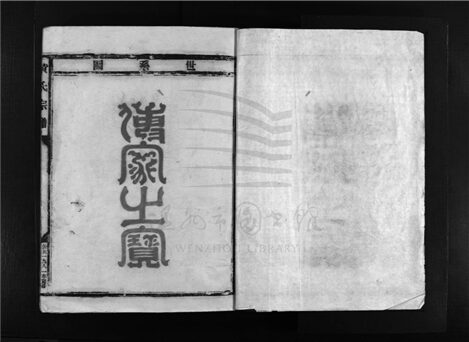 世系圖
傳家之寶
氏宗譜
温州市图书馆
WENZHOU LIBRARY